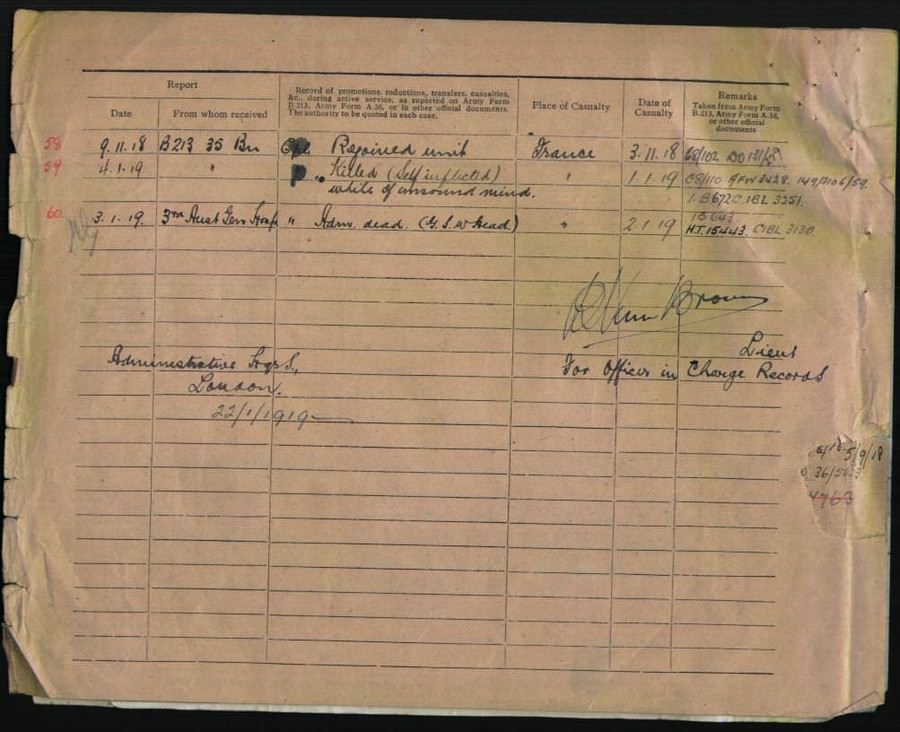 Report
Record of promotions, reductions, transfers, casualties,
&c., during active service, as reported on Army Form
B.213, Army Form A.36, or in other official documents.
The authority to be quoted in each case.
Date
From whom received
Place of Casualty
Date of
Casualty
Remarks
Taken from Army Form
B.213, Army Form A.36,
or other official
documents
58 9.11.18 B213 35 Bn Cpl Rejoined unit France 3.11.18 C8/102
59 4.1.19 " " Killed (Self inflicted) " 1.1.19 C8/110 AFW3428.
while of unsound mind. B6720 1BL 3251.
60 3.1.19. 3rd Aust Gen Hosp " Adm. dead. (G.S.W Head) " 2.1.19
H.T.15443. C1BL 3130.
Brown
Lieut
Administrative Hqrs,
London.
22/1/1919
For Officer in Charge Records
5/9/18
4763